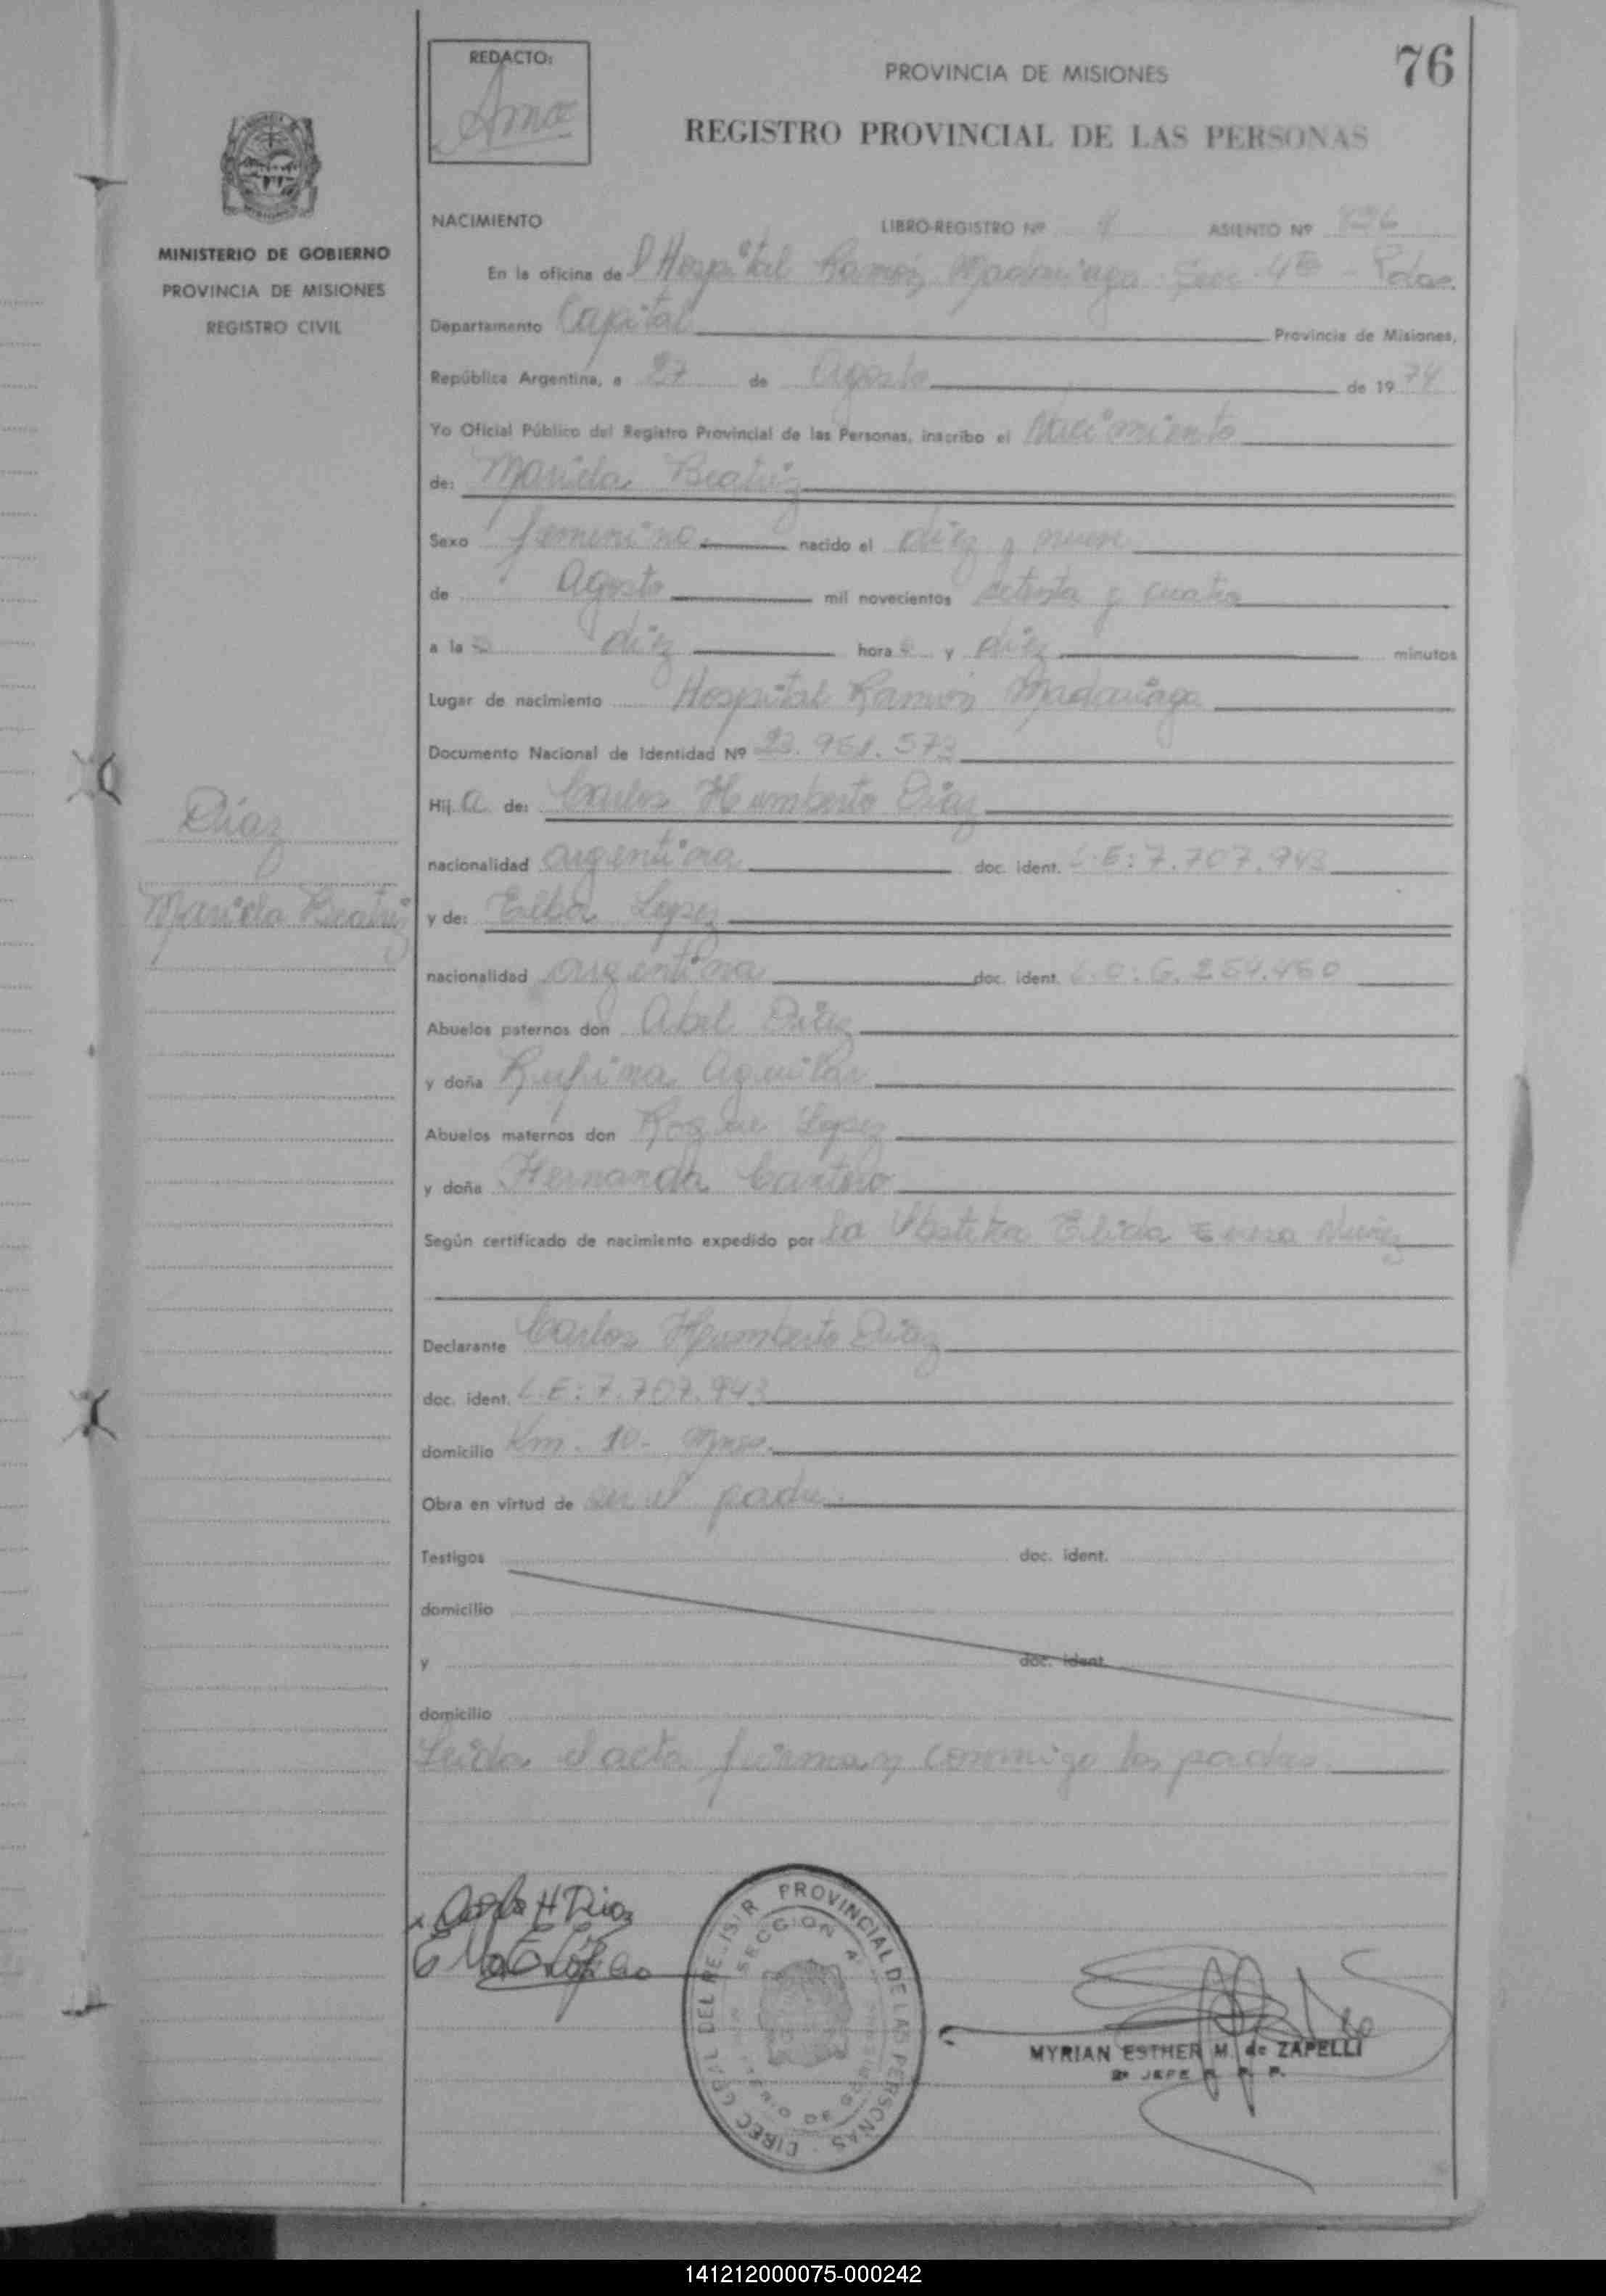 REDACTO:
PROVINCIA DE MISIONES
76
REGISTRO PROVINCIAL DE LAS PERSONAS
MINISTERIO DE GOBIERNO
PROVINCIA DE MISIONES
REGISTRO CIVIL
NACIMIENTO LIBRO-REGISTRO Nº ASIENTO Nº
En la oficina de l Hospital Ramón Madariaga Secc. 4ta - Pdas.
Departamento Capital Provincia de Misiones,
República Argentina, a 27 de Agosto de 1974
Yo Oficial Público del Registro Provincial de las Personas, inscribo el Nacimiento
de: Mariela Beatriz
Sexo femenino nacido el diez y nueve
de Agosto mil novecientos setenta y cuatro
a las diez horas y diez minutos
Lugar de nacimiento Hospital Ramón Madariaga
Documento Nacional de Identidad Nº 23.951.573
Hija de: Carlos Humberto Diaz
nacionalidad argentina doc. ident. L.E: 7.707.943
y de: Elba Lopez
nacionalidad argentina doc. ident. L.C: 6.254.460
Abuelos paternos don Abel Diaz
y doña Rufina Aguilar
Abuelos maternos don Roque Lopez
y doña Hernanda Cantero
Según certificado de nacimiento expedido por la Obstetra Elida
Declarante Carlos Humberto Diaz
doc. ident. L.E: 7.707.943
domicilio Km. 10-
Obra en virtud de ser el padre.
Testigos doc. ident.
domicilio
y doc. ident.
domicilio
Leida el acta firman conmigo los padres.
Díaz
Mariela Beatriz
Carlos H Diaz
DIREC. GRAL DEL REGISTR. PROVINCIAL DE LAS PERSONAS
SECCION 4ª
MYRIAN ESTHER M. de ZAPELLI
2º JEFE R. P. P.
141212000075-000242